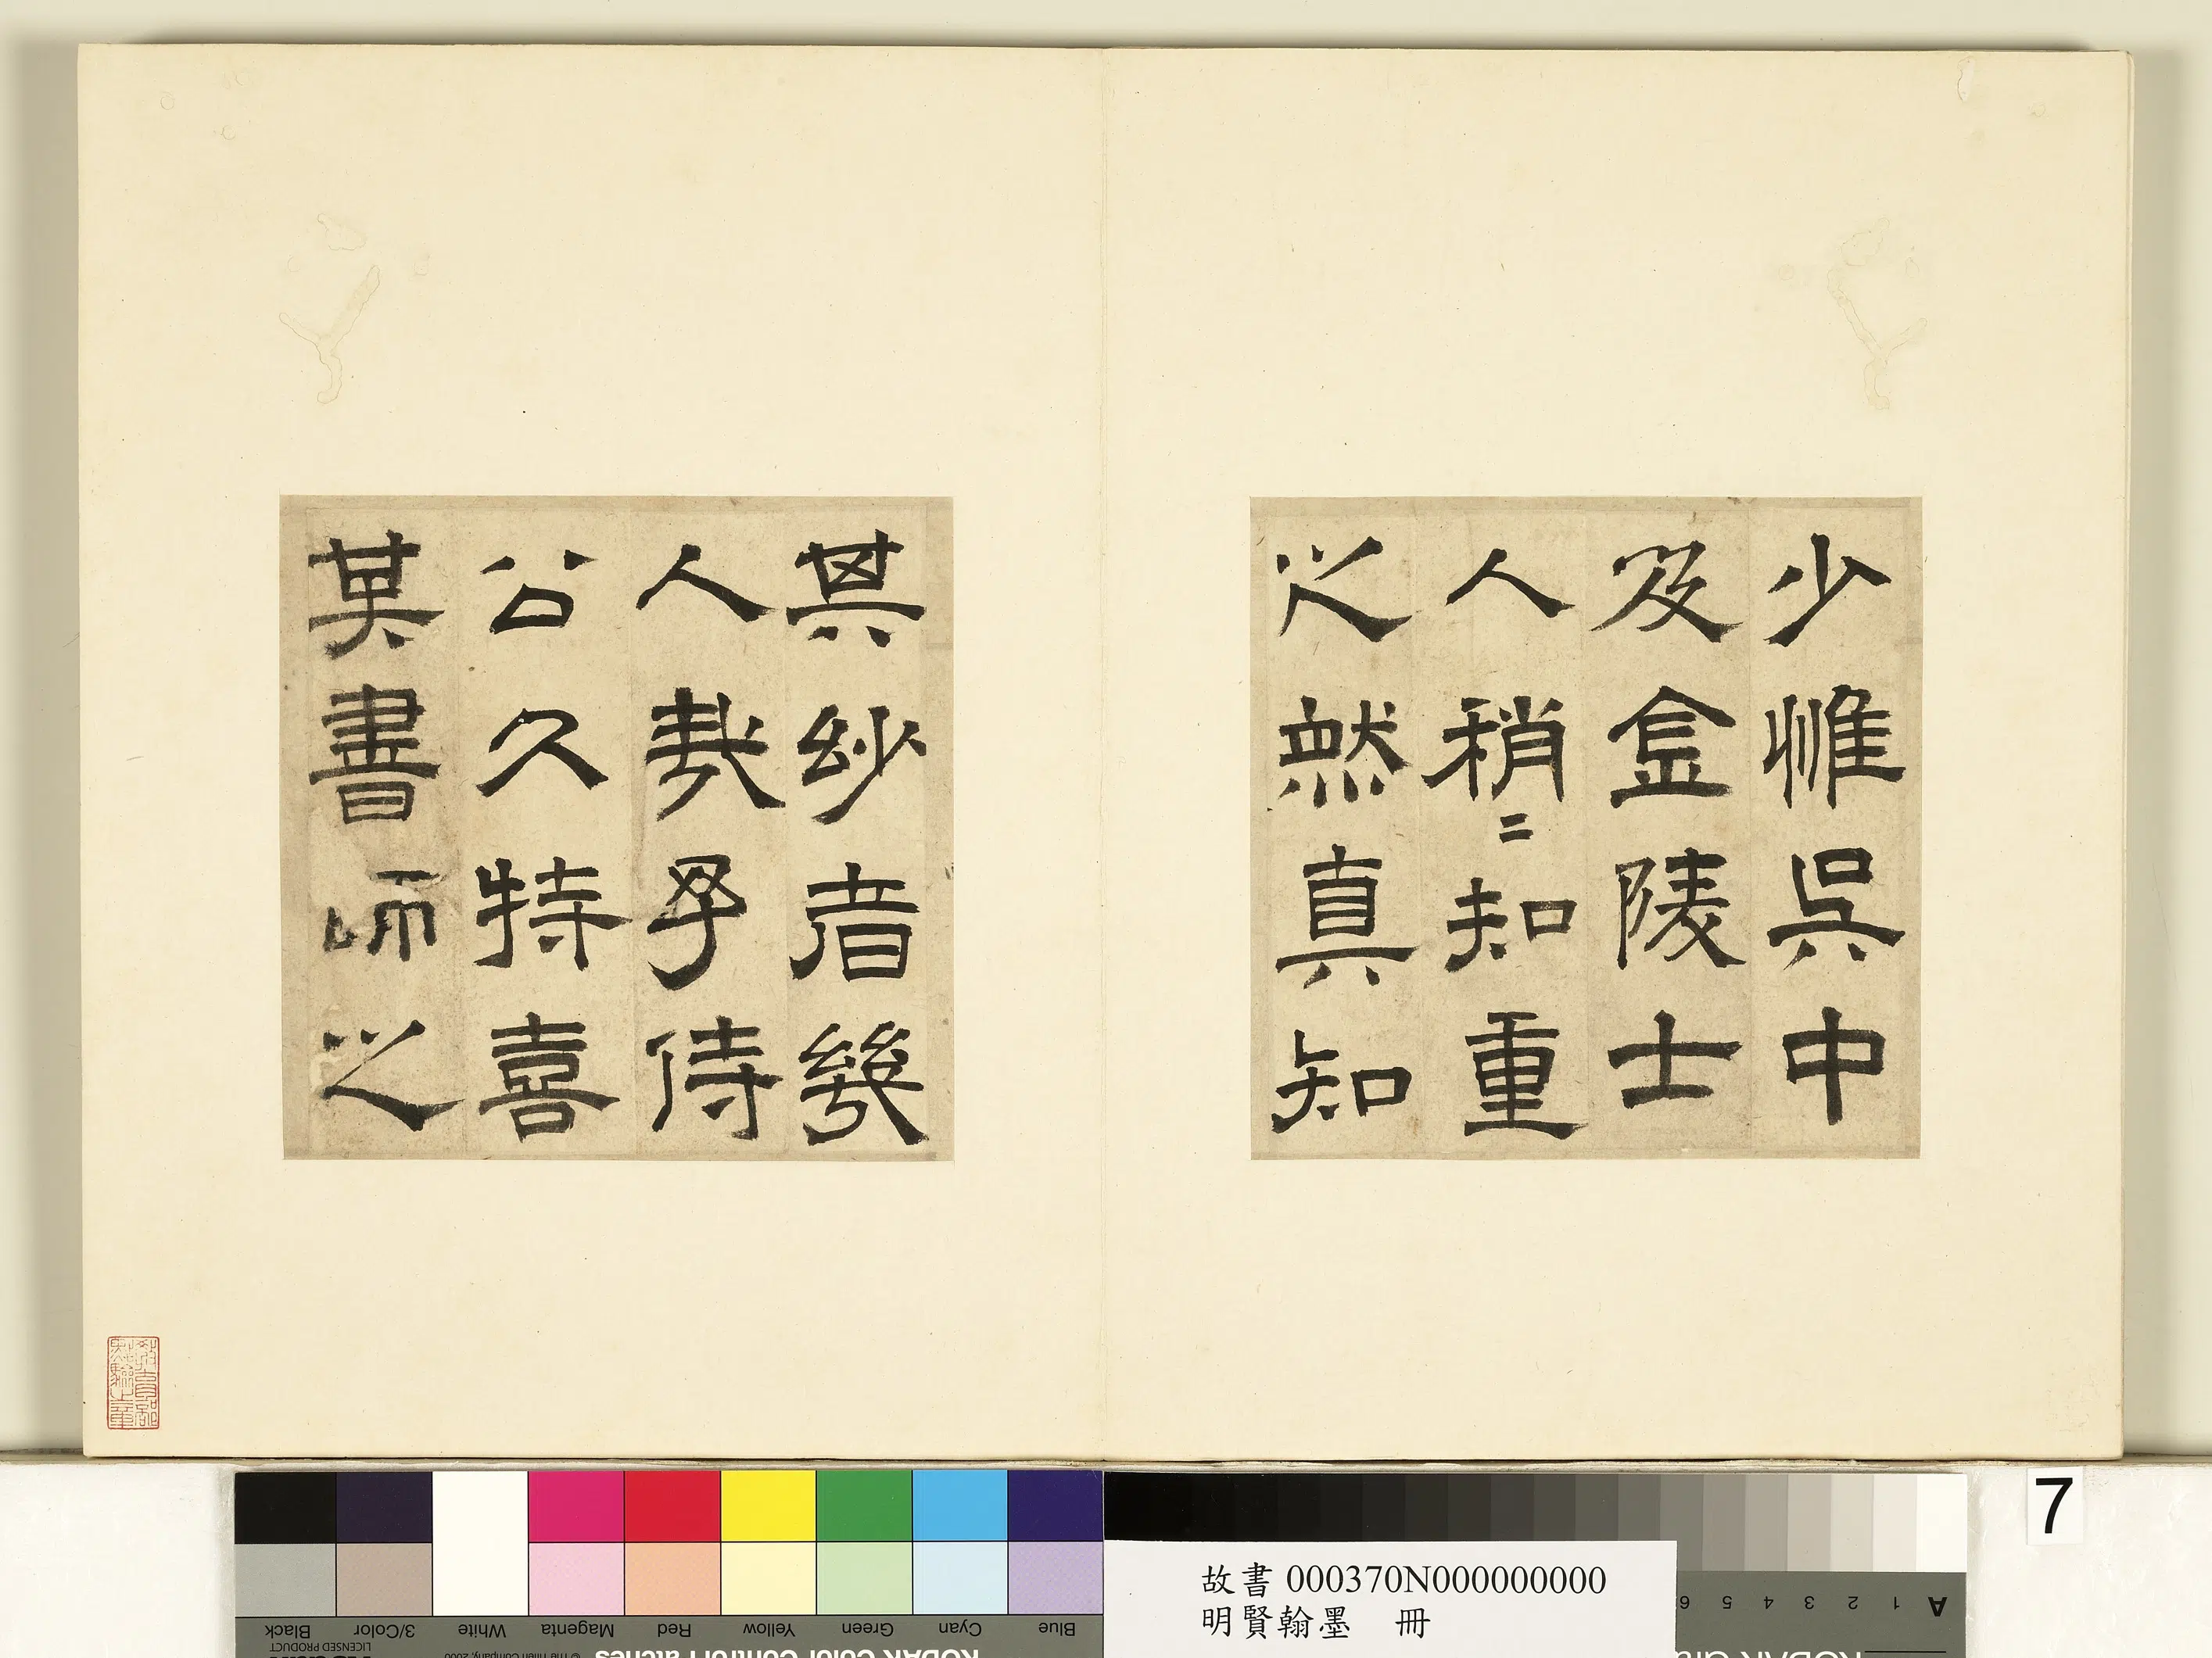 少惟吳中
及金陵士
人稍〻知重
之然真知
其妙者幾
人哉予侍
公久特喜
其書師之
7
故書 000370N000000000
明賢翰墨 冊
Black
3/Color
White
Magenta
Red
Yellow
Green
Cyan
Blue
LICENSED PRODUCT
© The Tiffen Company, 2000
KODAK Color Control Patches
A 1 2 3 4 5 6